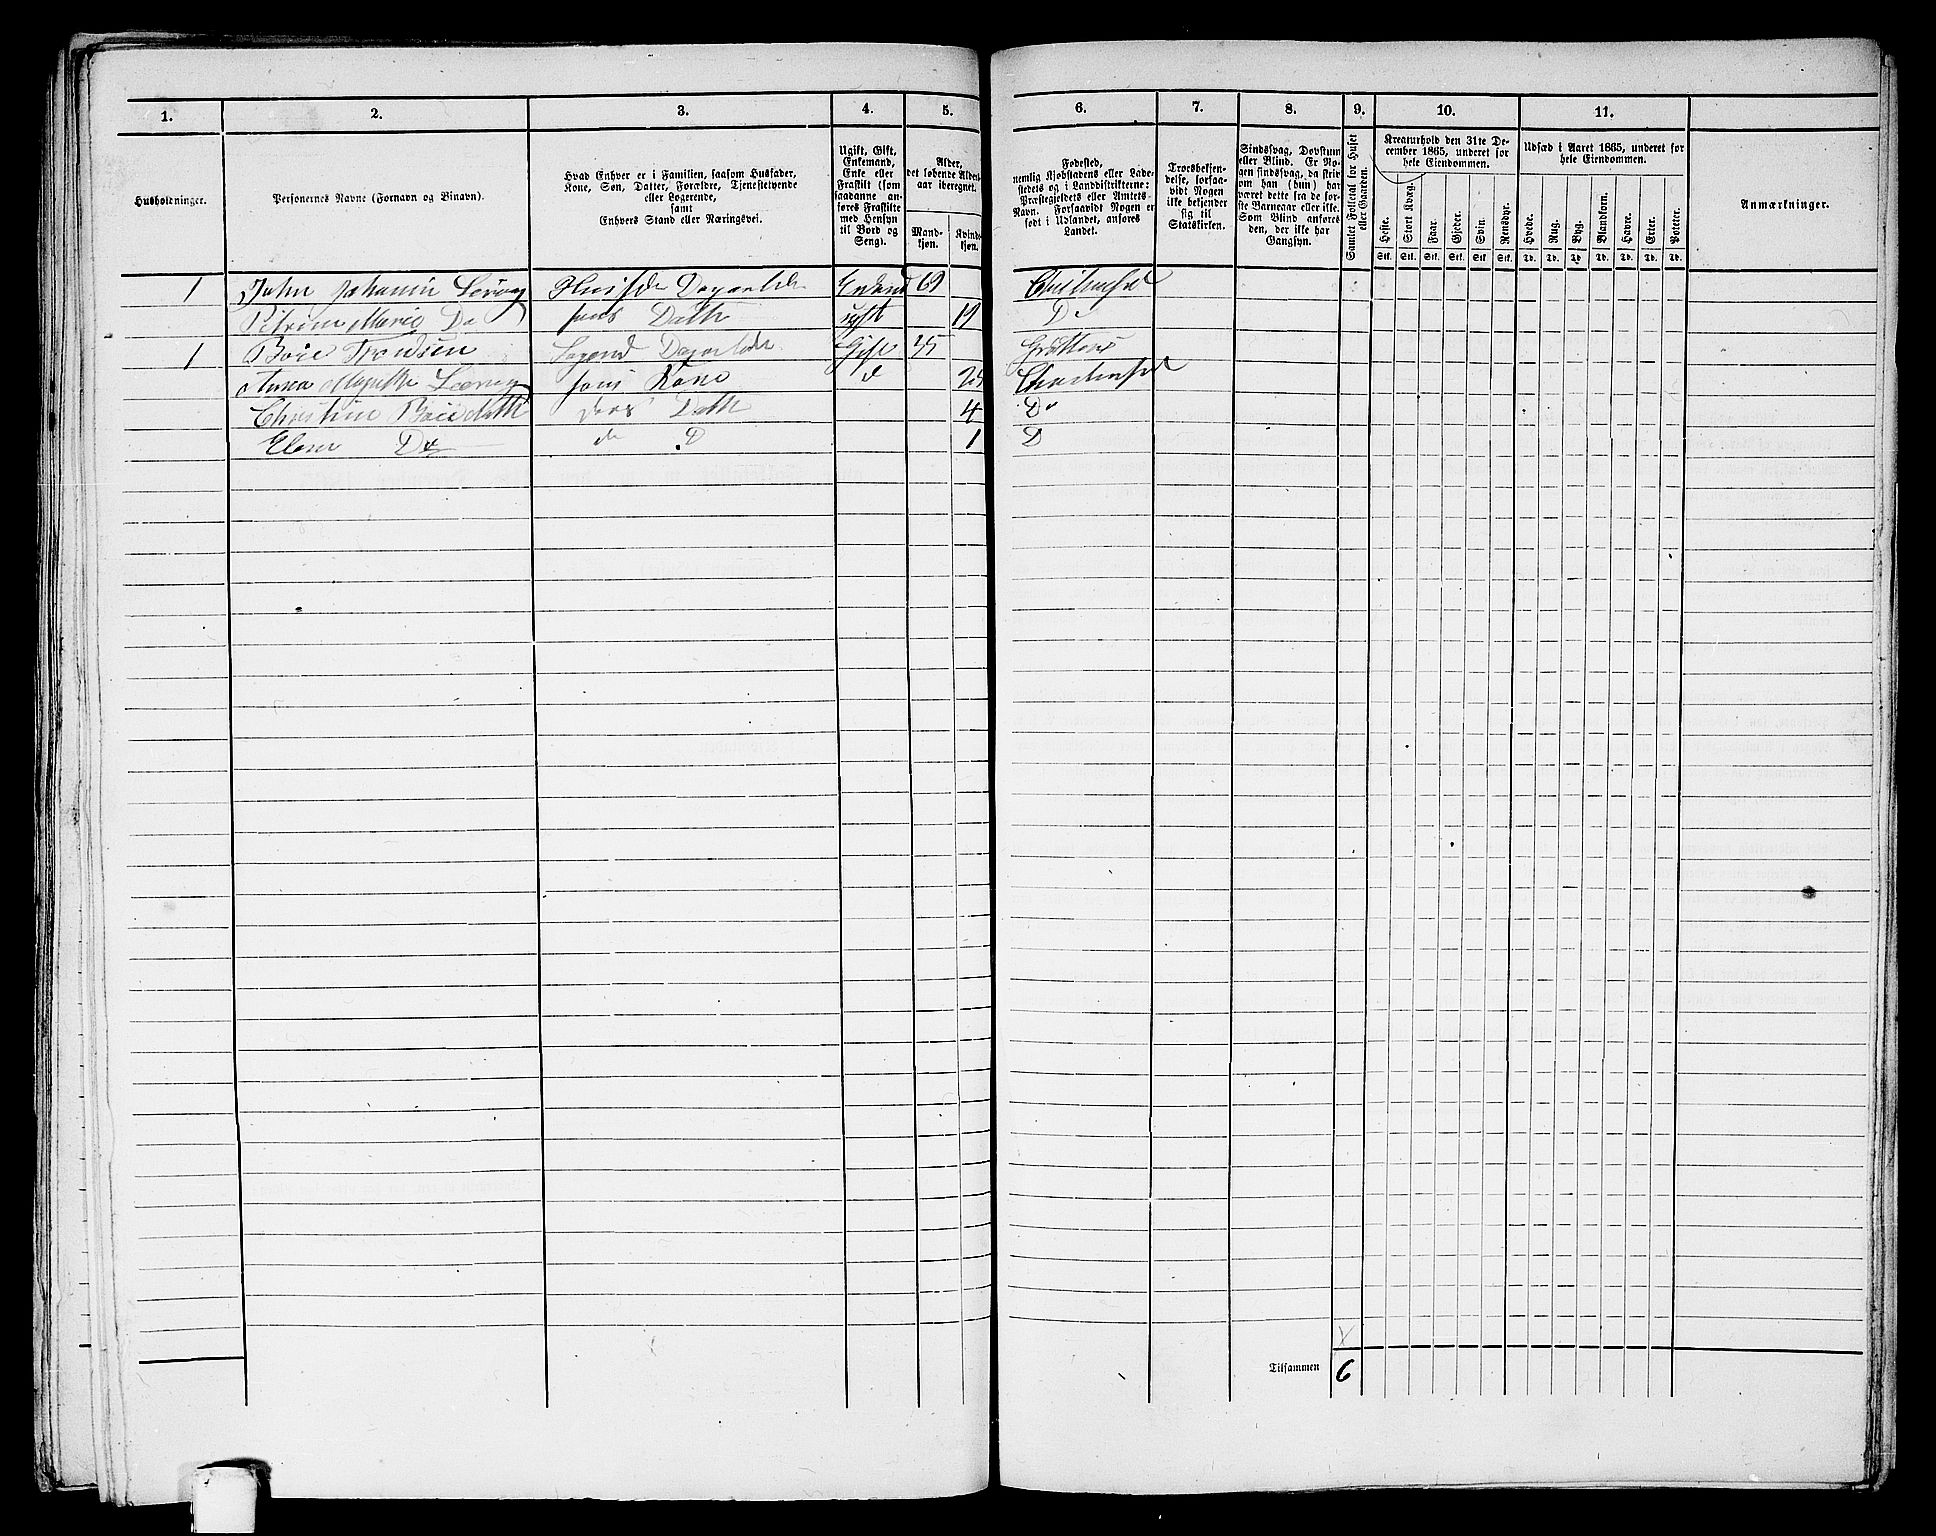 1. 2. 3. 4. 5. 6. 7. 8. 9. 10. 11.
Husholdninger.
Personernes Navne (Fornavn og Binavn).
Hvad Enhver er i Familien, saasom Husfader,
Kone, Søn, Datter, Forældre, Tjenestetyende
eller Logerende,
samt
Enhvers Stand eller Næringsvei.
Ugift, Gift,
Enkemand,
Enke eller
Fraskilt (som
saadanne an-
føres Fraskilte
med Hensyn
til Bord og
Seng).
Alder,
det løbende Alders-
aar iberegnet.
Mand-
kjøn.
Kvind-
kjøn.
Fødested,
nemlig Kjøbstadens eller Lade-
stedets og i Landdistrikterne:
Præstegjeldets eller Amtets
Navn. Forsaavidt Nogen er
født i Udlandet, anføres
Landet.
Troesbekjen-
delse, forsaa-
vidt Nogen
ikke bekjender
sig til
Statskirken.
Sindssvag, Døvstum
eller Blind. Er No-
gen sindssvag, da skriv
om han (hun) har
været dette fra de før-
ste Barneaar eller ikke.
Som Blind anføres
den, der ikke har
Gangsyn.
Samlet Folketal for Huset
eller Gaarden.
Kreaturhold den 31te De-
cember 1865, underet for
hele Eiendommen.
Heste. Stort Kvæg. Faar. Gjeder. Svin. Rensdyr.
Stk. Stk. Stk. Stk. Stk. Stk.
Udsæd i Aaret 1865, underet for
hele Eiendommen.
Hvede. Rug. Byg. Blandkorn. Havre. Erter. Poteter.
Td. Td. Td. Td. Td. Td. Td.
Anmærkninger.
1 John Johansen 69
Marie Do hans Datt ugift 19 Do
1 Boie Gift 35
Anna hans Kone d
Christine deres Datt 4 Do
Do do D 1 D
Tilsammen 6